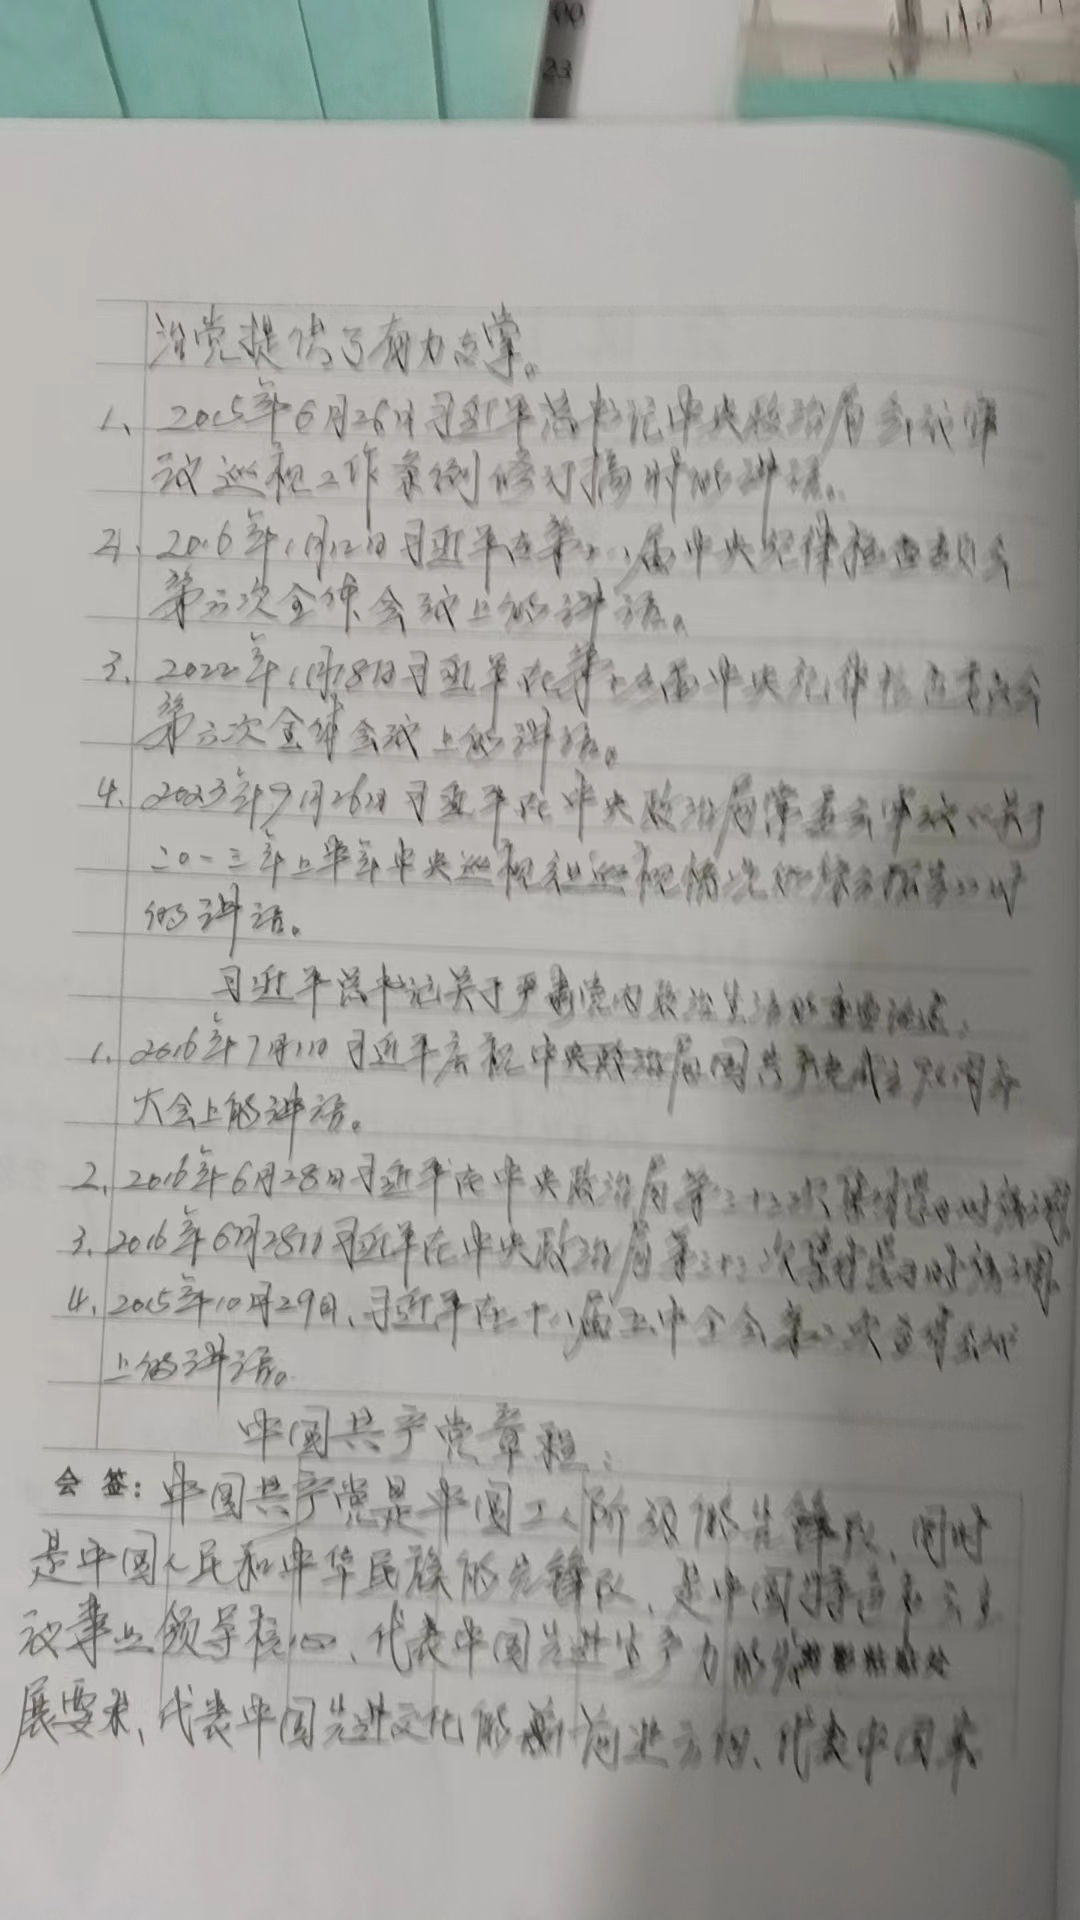 00
23
治党提供了有力支掌。
1、2015年6月26日习近平总书记中央政治局会议审
议巡视工作条例修订稿时的讲话。
2、2016年1月12日习近平在第十八届中央纪律检查委员会
第六次全体会议上的讲话。
3、2022年1月18日习近平在第十九届中央纪律检查委员会
第六次全体会议上的讲话。
4、2023年9月26日习近平在中央政治局常委会审议《关于
二〇一三年上半年中央巡视组巡视情况的综合报告》时
的讲话。
习近平总书记关于严肃党内政治生活的重要论述:
1、2016年7月1日习近平庆祝中央政治局国共产党成立95周年
大会上的讲话。
2、2016年6月28日习近平在中央政治局第三十三次集体学习时
3、2016年6月28日习近平在中央政治局第三十三次集体学习时
4、2015年10月29日、习近平在十八届五中全会第二次全体会议
上的讲话。
中国共产党章程:
会 签: 中国共产党是中国工人阶级的先锋队、同时
是中国人民和中华民族的先锋队、是中国特色社会主
议事业领导核心、代表中国先进生产力的
展要求、代表中国先进文化的前进方向、代表中国